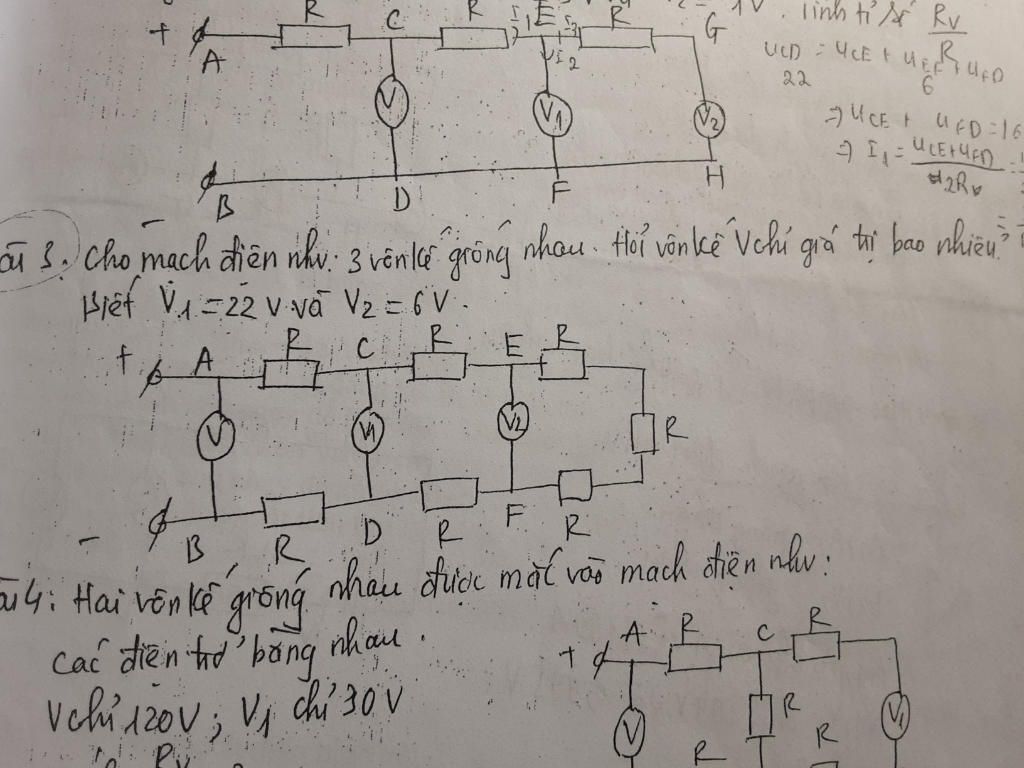 R C R I1 E I2 R G
+ A
I2
V V1 V2
B D F H
1V. Tính tỉ số Rv/R
UCD = UCE + UEF + UFD
22 6
=> UCE + UFD = 16
=> I1 = UCE+UFD / 2R
Câu 3. Cho mạch điện như: 3 vôn kế giống nhau. Hỏi vôn kế V chỉ giá trị bao nhiêu?
Biết V1 = 22 V và V2 = 6 V.
+ A R C R E R
V V1 V2 R
- B R D R F R
Bài 4: Hai vôn kế giống nhau được mắc vào mạch điện như:
các điện trở bằng nhau.
V chỉ 120V; V1 chỉ 30 V
Rv
+ A R C R
V R V1
R R